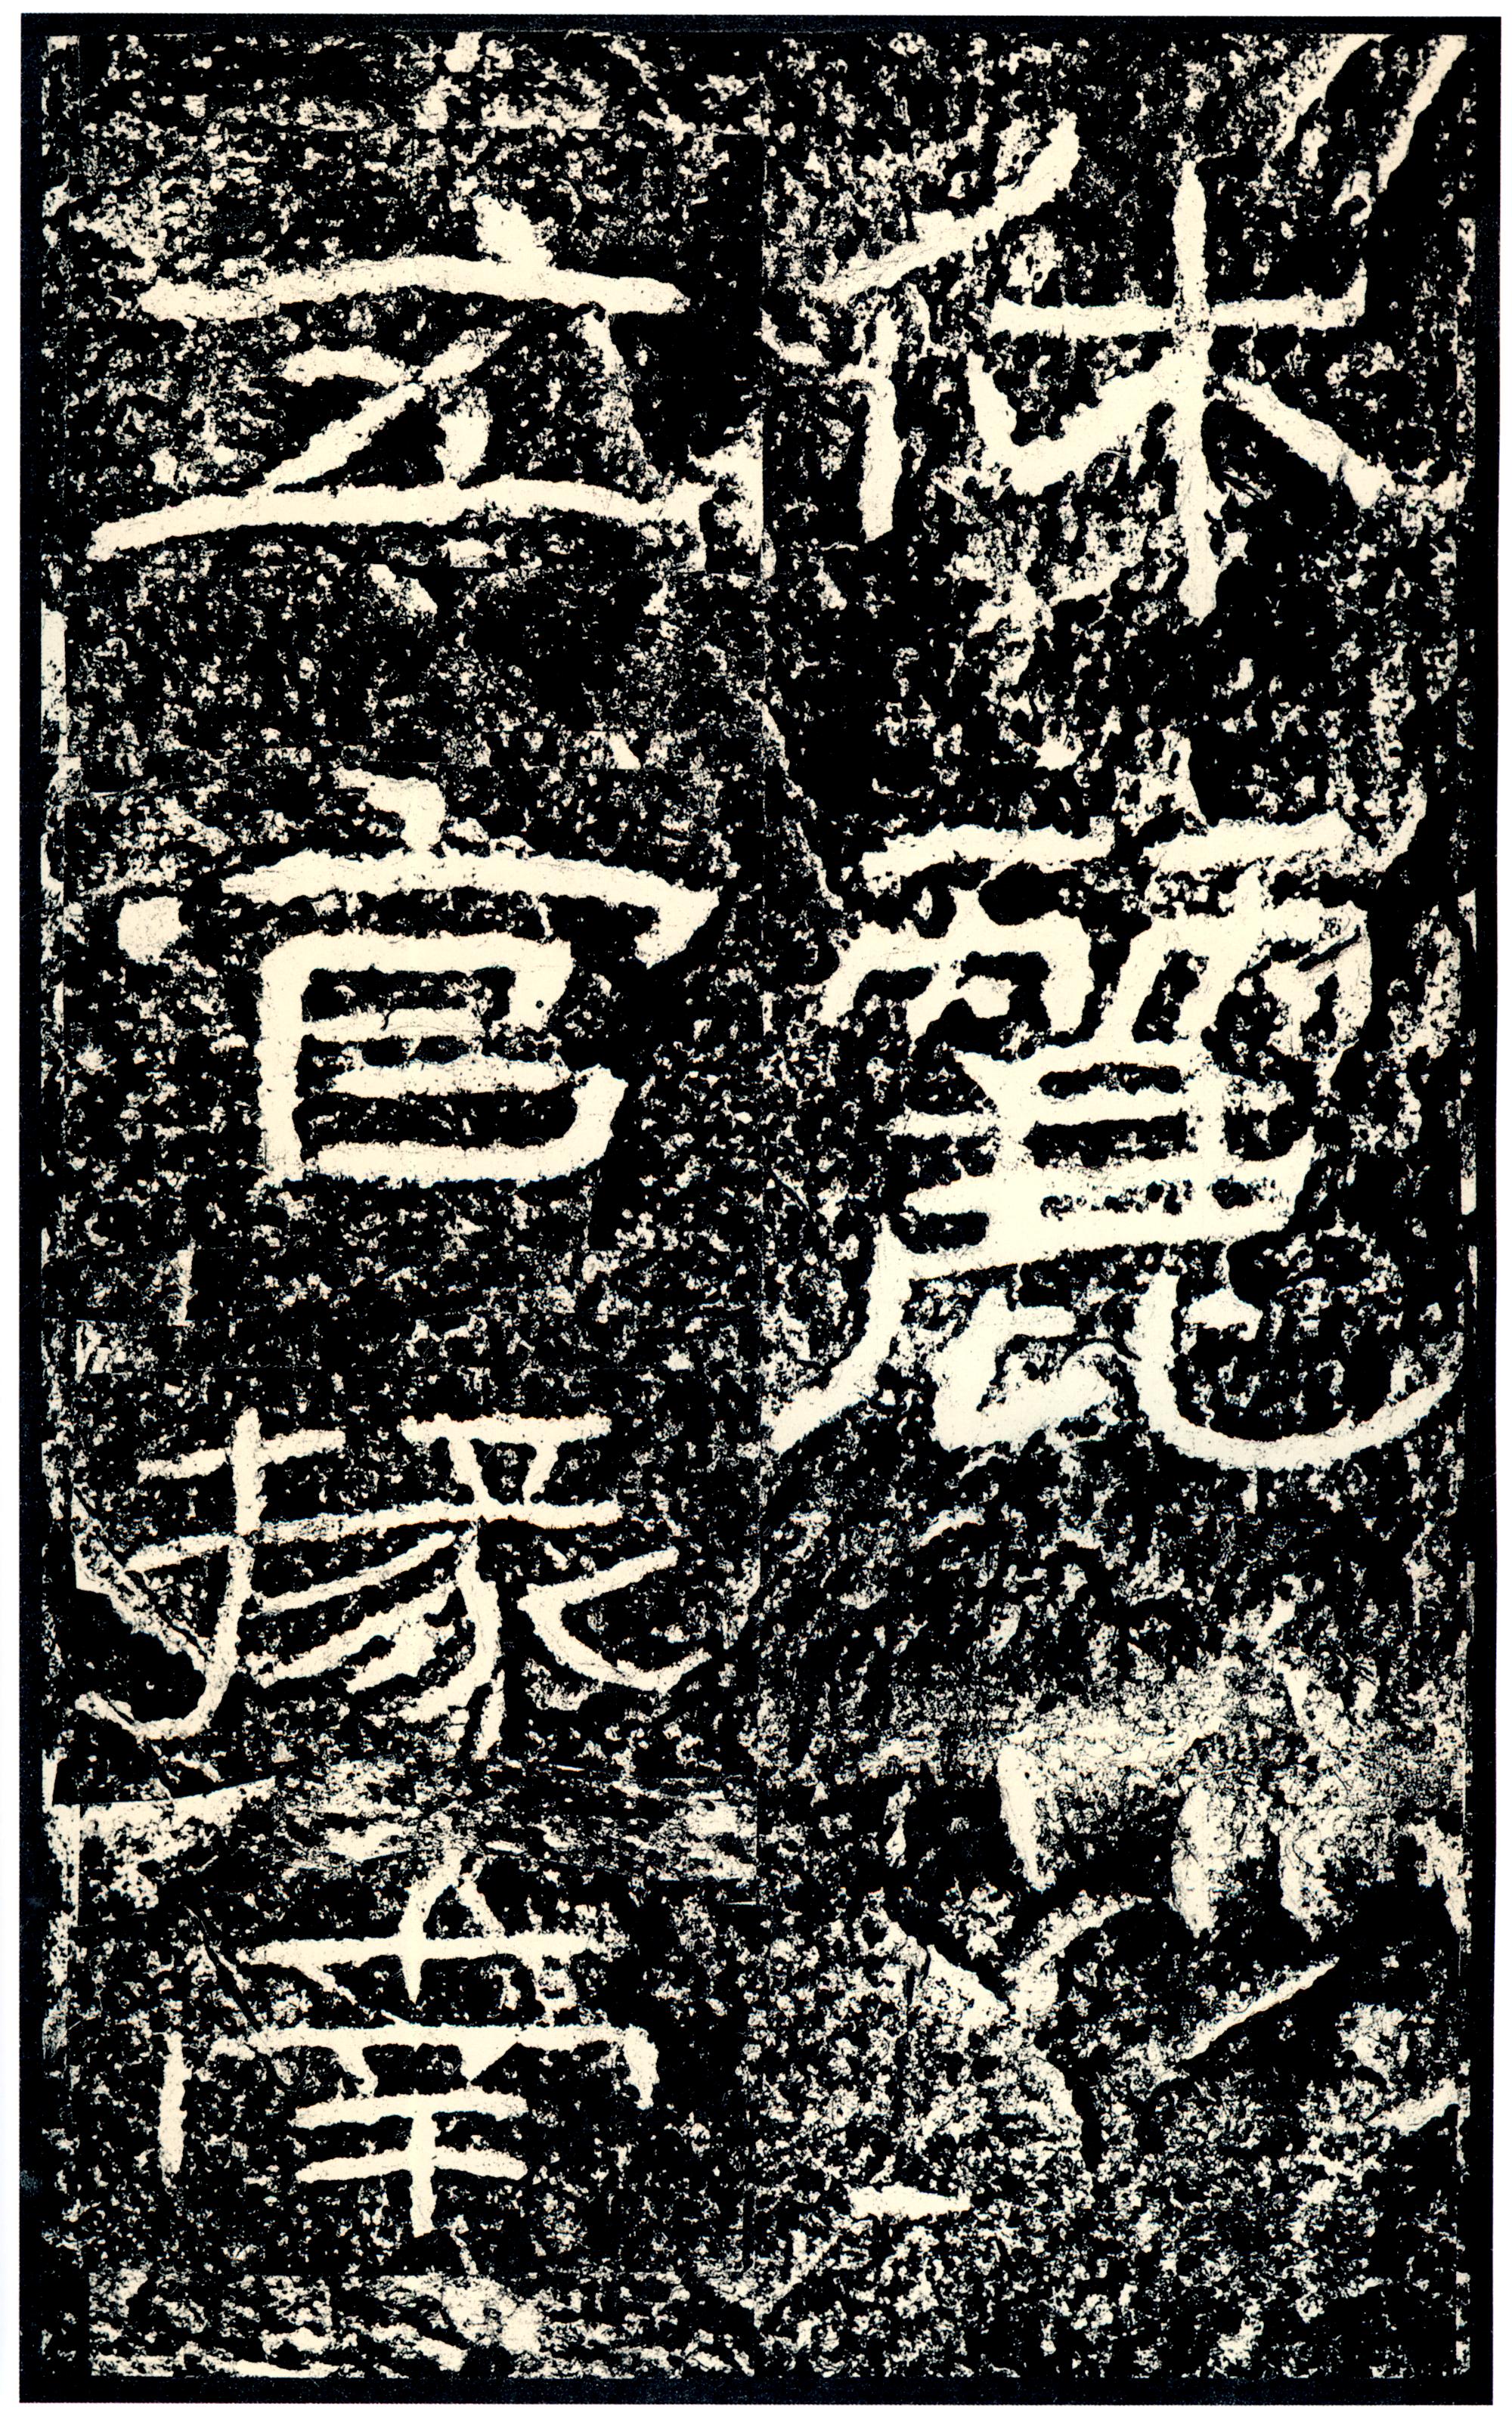 休麗
五官掾南